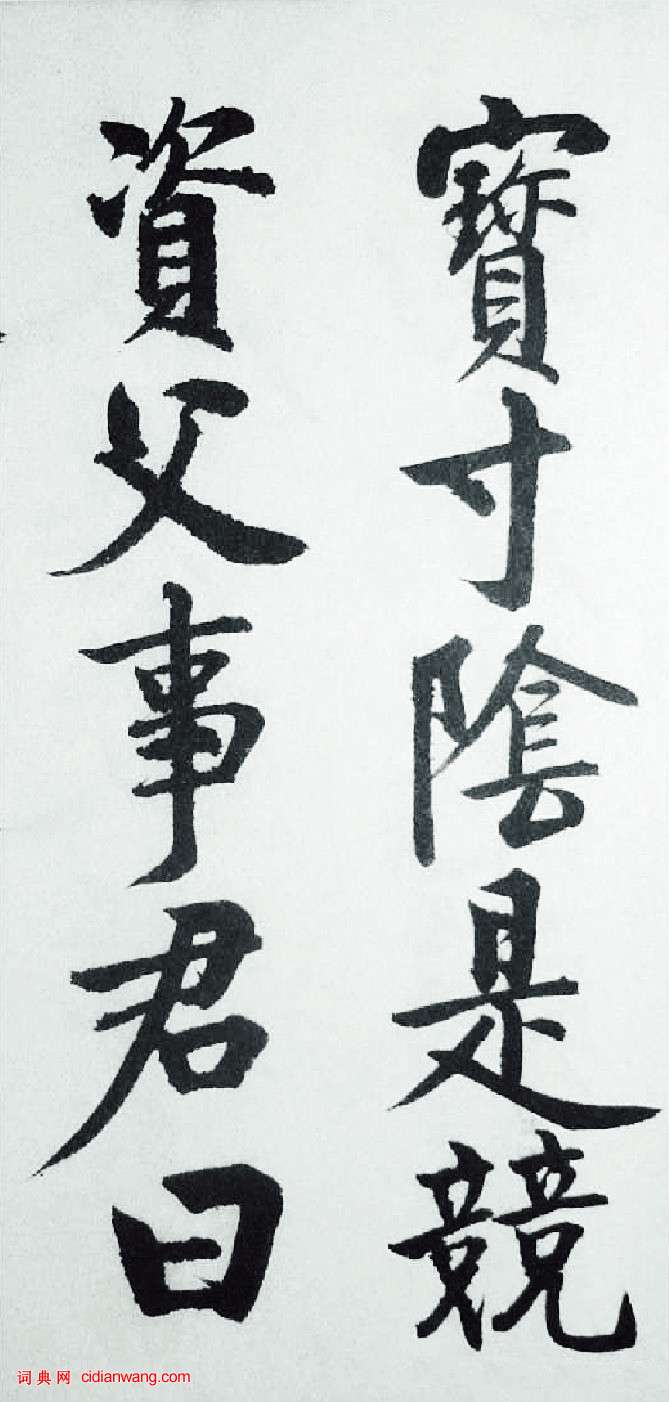 寳寸陰是競
資父事君曰
词典网 cidianwang.com